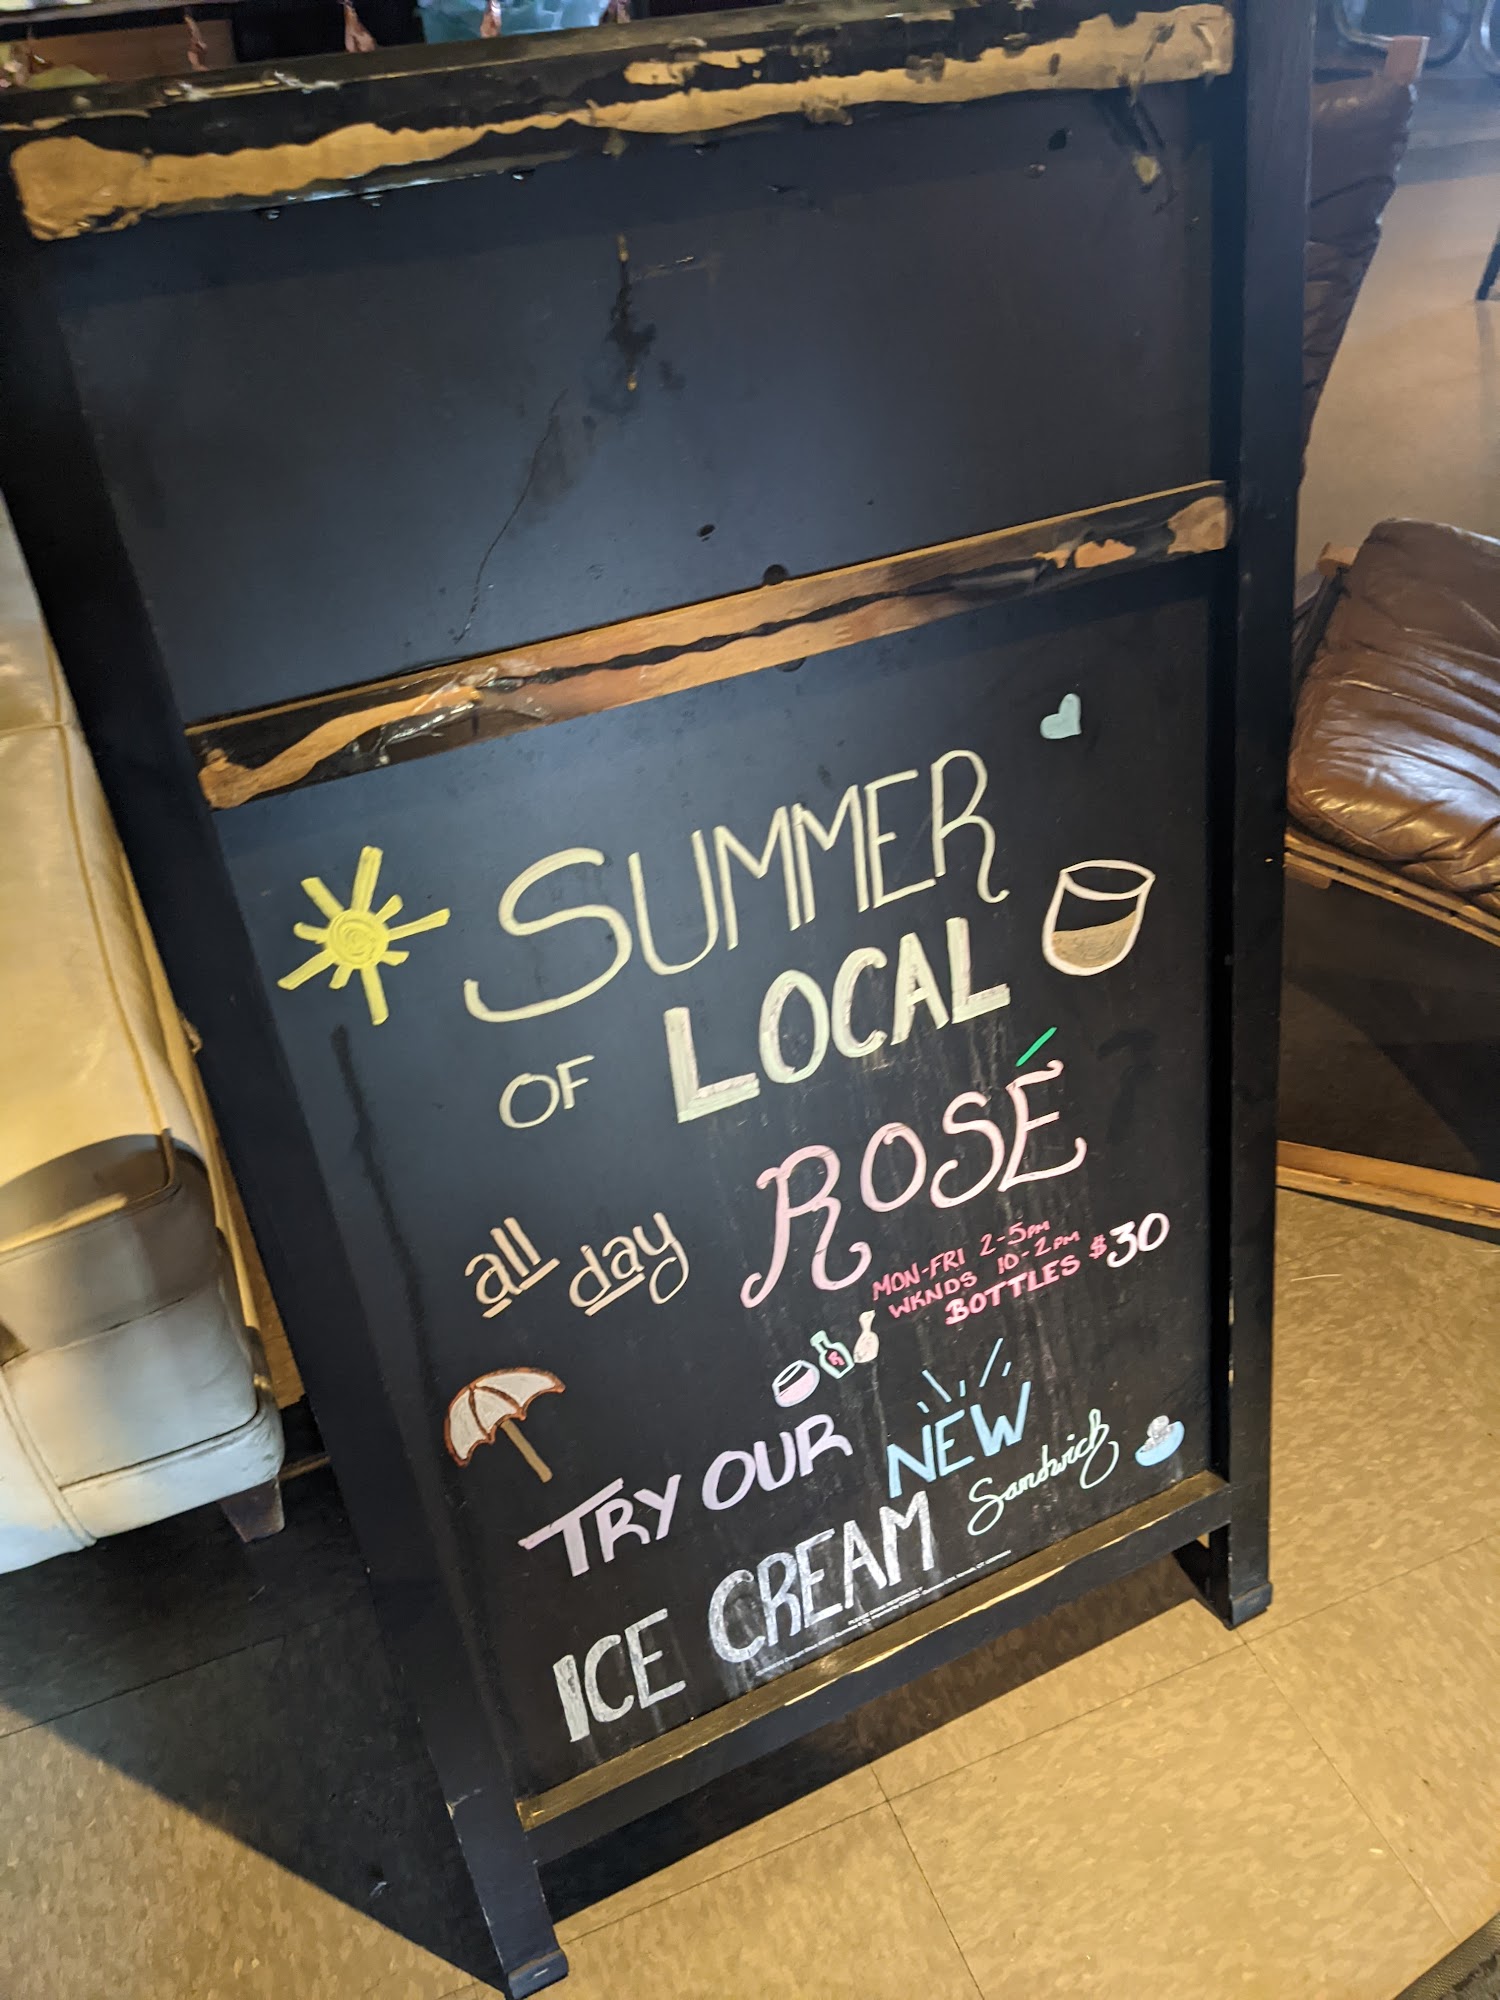 SUMMER
OF LOCAL
all day ROSÉ
MON-FRI 2-5PM
WKNDS 10-2PM
BOTTLES $30
R
TRY OUR NEW
ICE CREAM Sandwich
PLEASE DRINK RESPONSIBLY